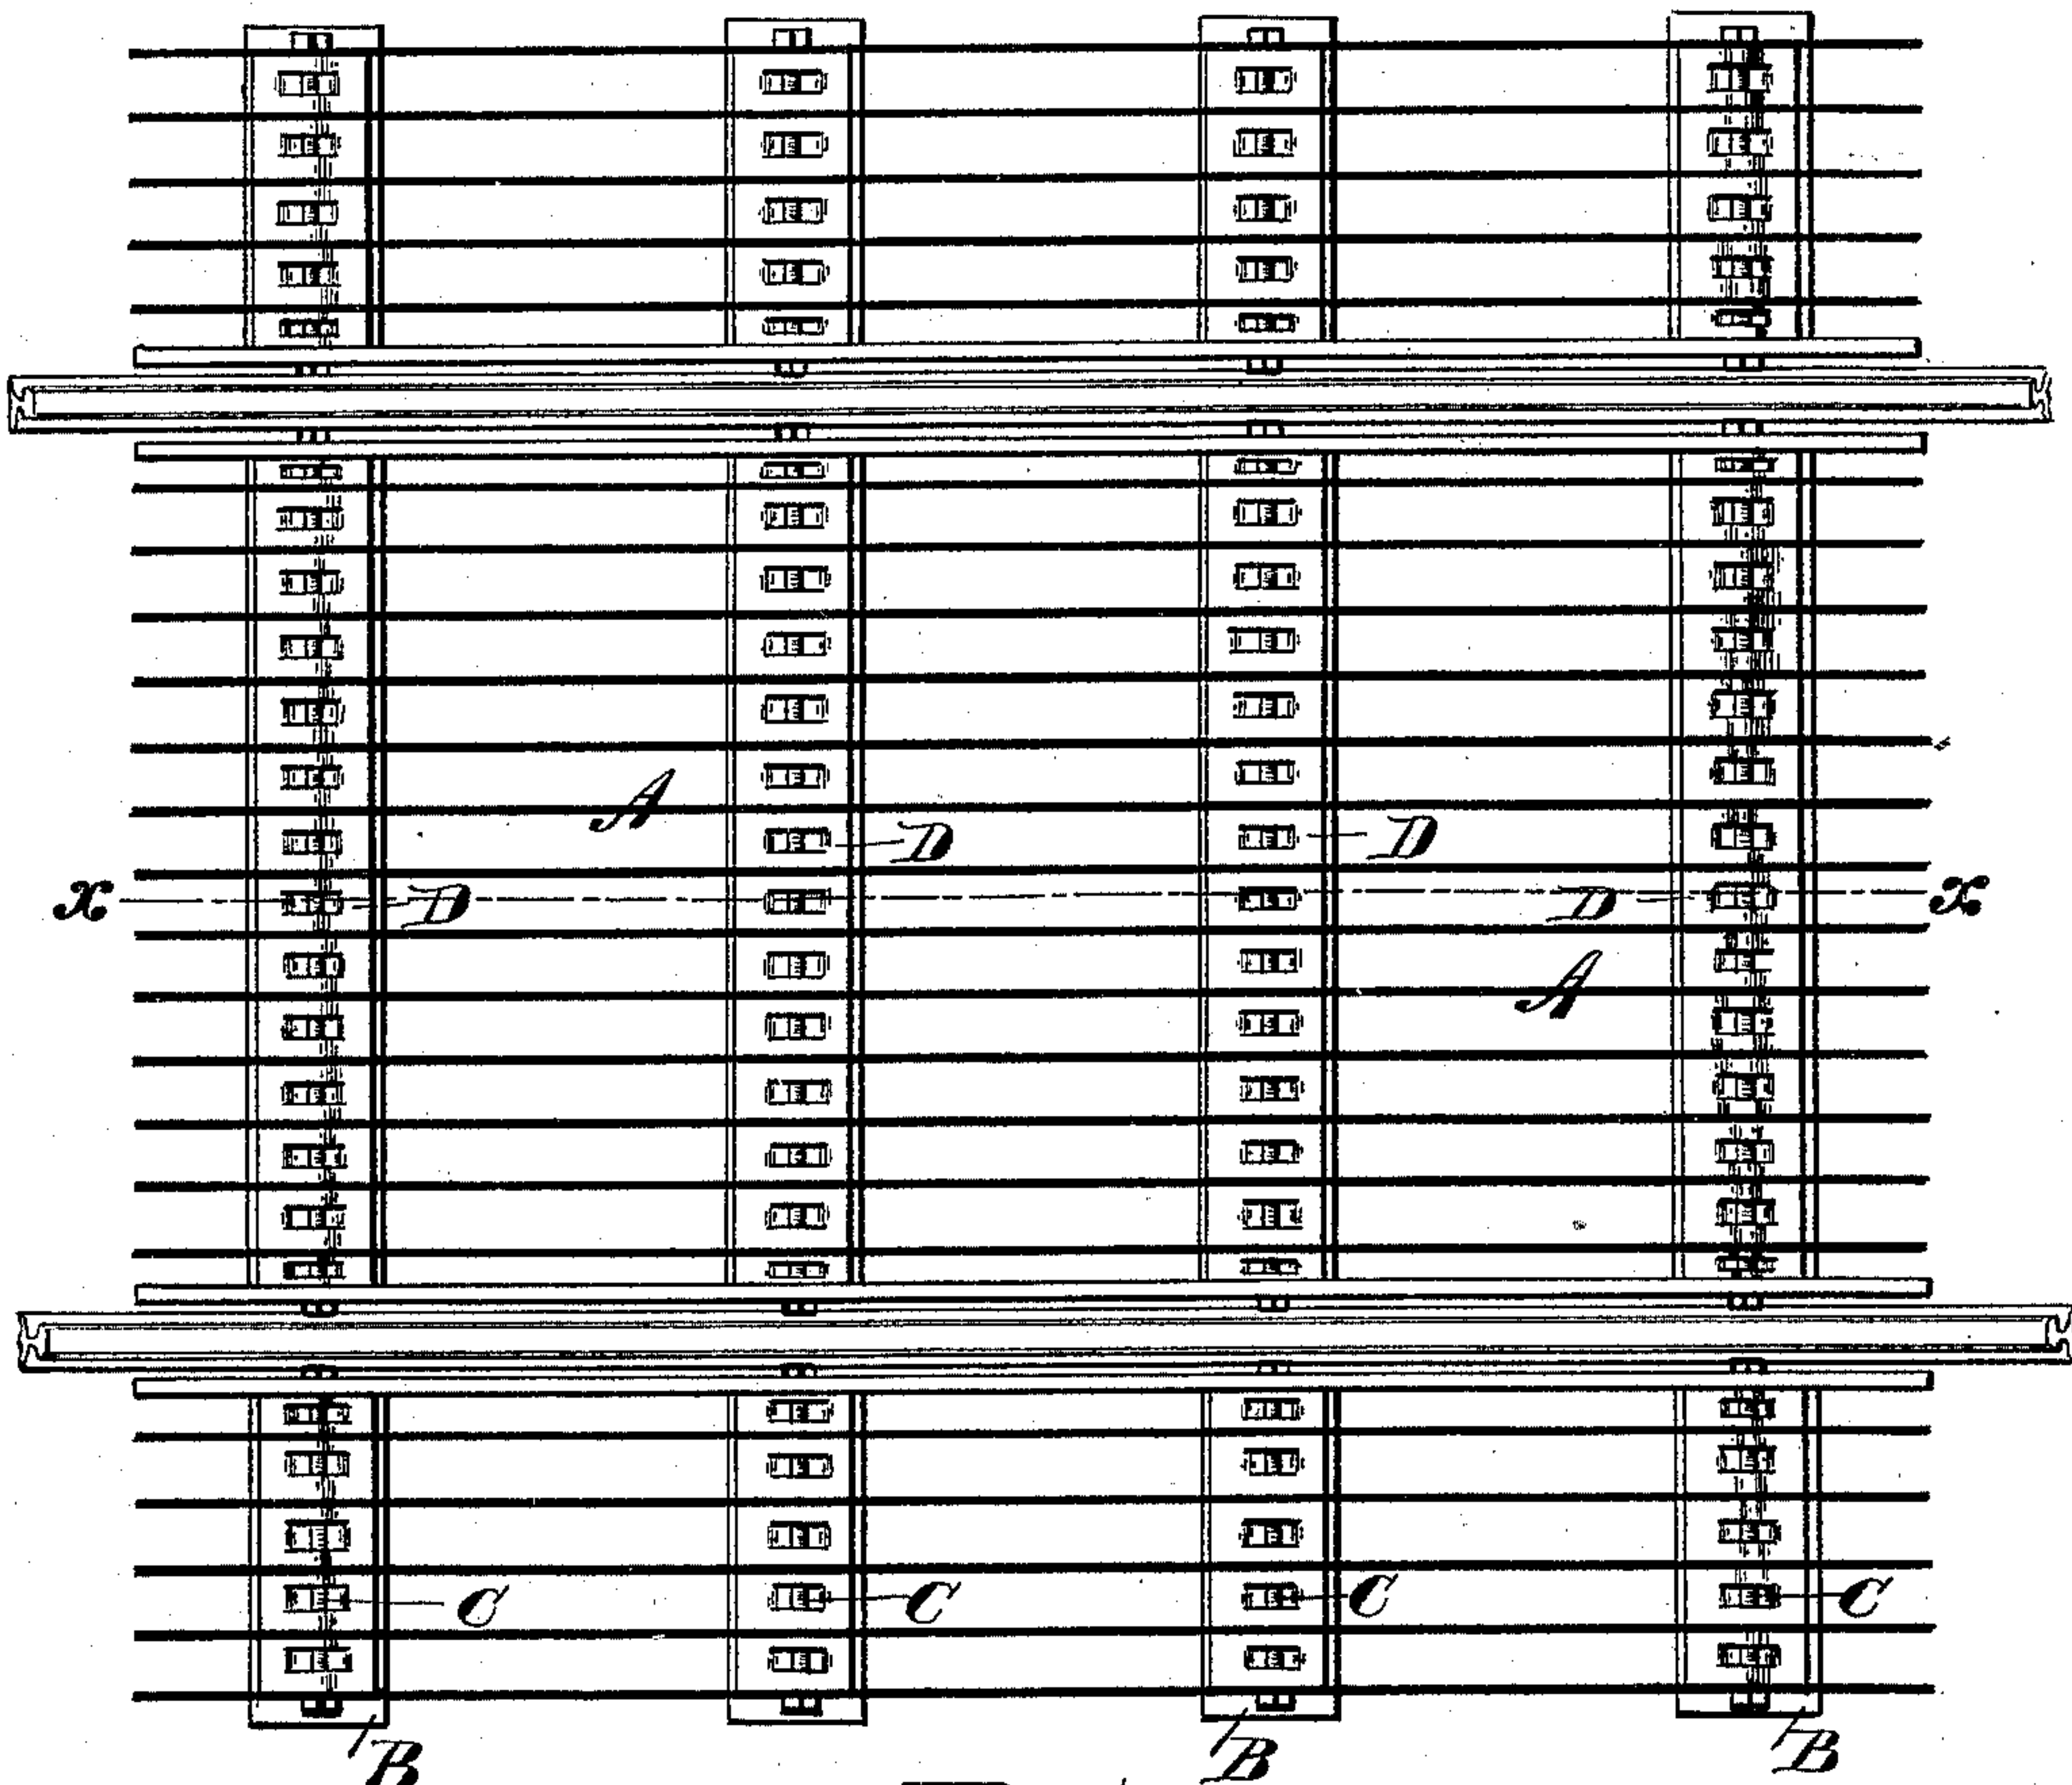 A
D D
x D D x
A
C C C C
B B B